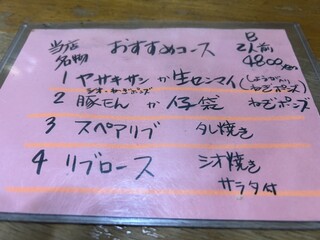 当店名物 おすすめコース B 2人前 4800
1 ヤサキサン か 生センマイ (しょうがじょうゆ ねぎポンズ)
シオ・ねぎポンズ
2 豚たん か 仔袋 ねぎポンズ
3 スペアリブ タレ焼き
4 リブロース シオ焼き
サラダ付